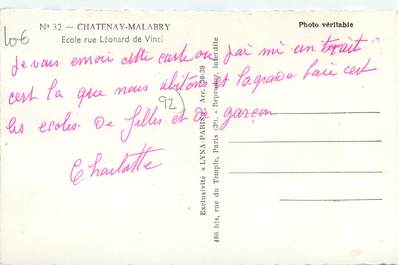 N° 32 - CHATENAY-MALABRY
Ecole rue Léonard de Vinci
Photo véritable
10€
je vous envoir cette carte ou j'ai mi un trait
c'est la que nous abitons et la grade haie cest
les ecoles de filles et de garçon
92
Charlotte
Exclusivité « LYNA-PARIS » Arc. 50-39
460 bis, rue du Temple, Paris (3e). - Reproduc. interdite